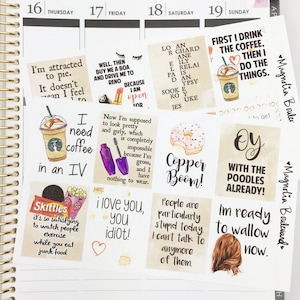 16 THURSDAY
17 FRIDAY
18 SATURDAY
19 SUNDAY
I'm attracted
to pie.
It doesn't
mean I feel
WELL, THEN
BUY ME A BOA
AND DRIVE ME TO
RENO
BECAUSE
I AM
open
FIRST I DRINK
THE COFFEE.
THEN I
DO THE
THINGS.
I
need
coffee
in an IV
Now I'm supposed
to look pretty
and girly, which
is completely
impossible
because I'm
gross, and
I have
nothing to
wear.
Copper
Boom!
OY
WITH THE
POODLES
ALREADY!
Skittles
it's so satisfying
to watch people
exercise
while you eat
junk food
i love you,
you
idiot!
People are
particularly
stupid today.
I can't talk to
anymore
of them.
I'm ready
to wallow
now.